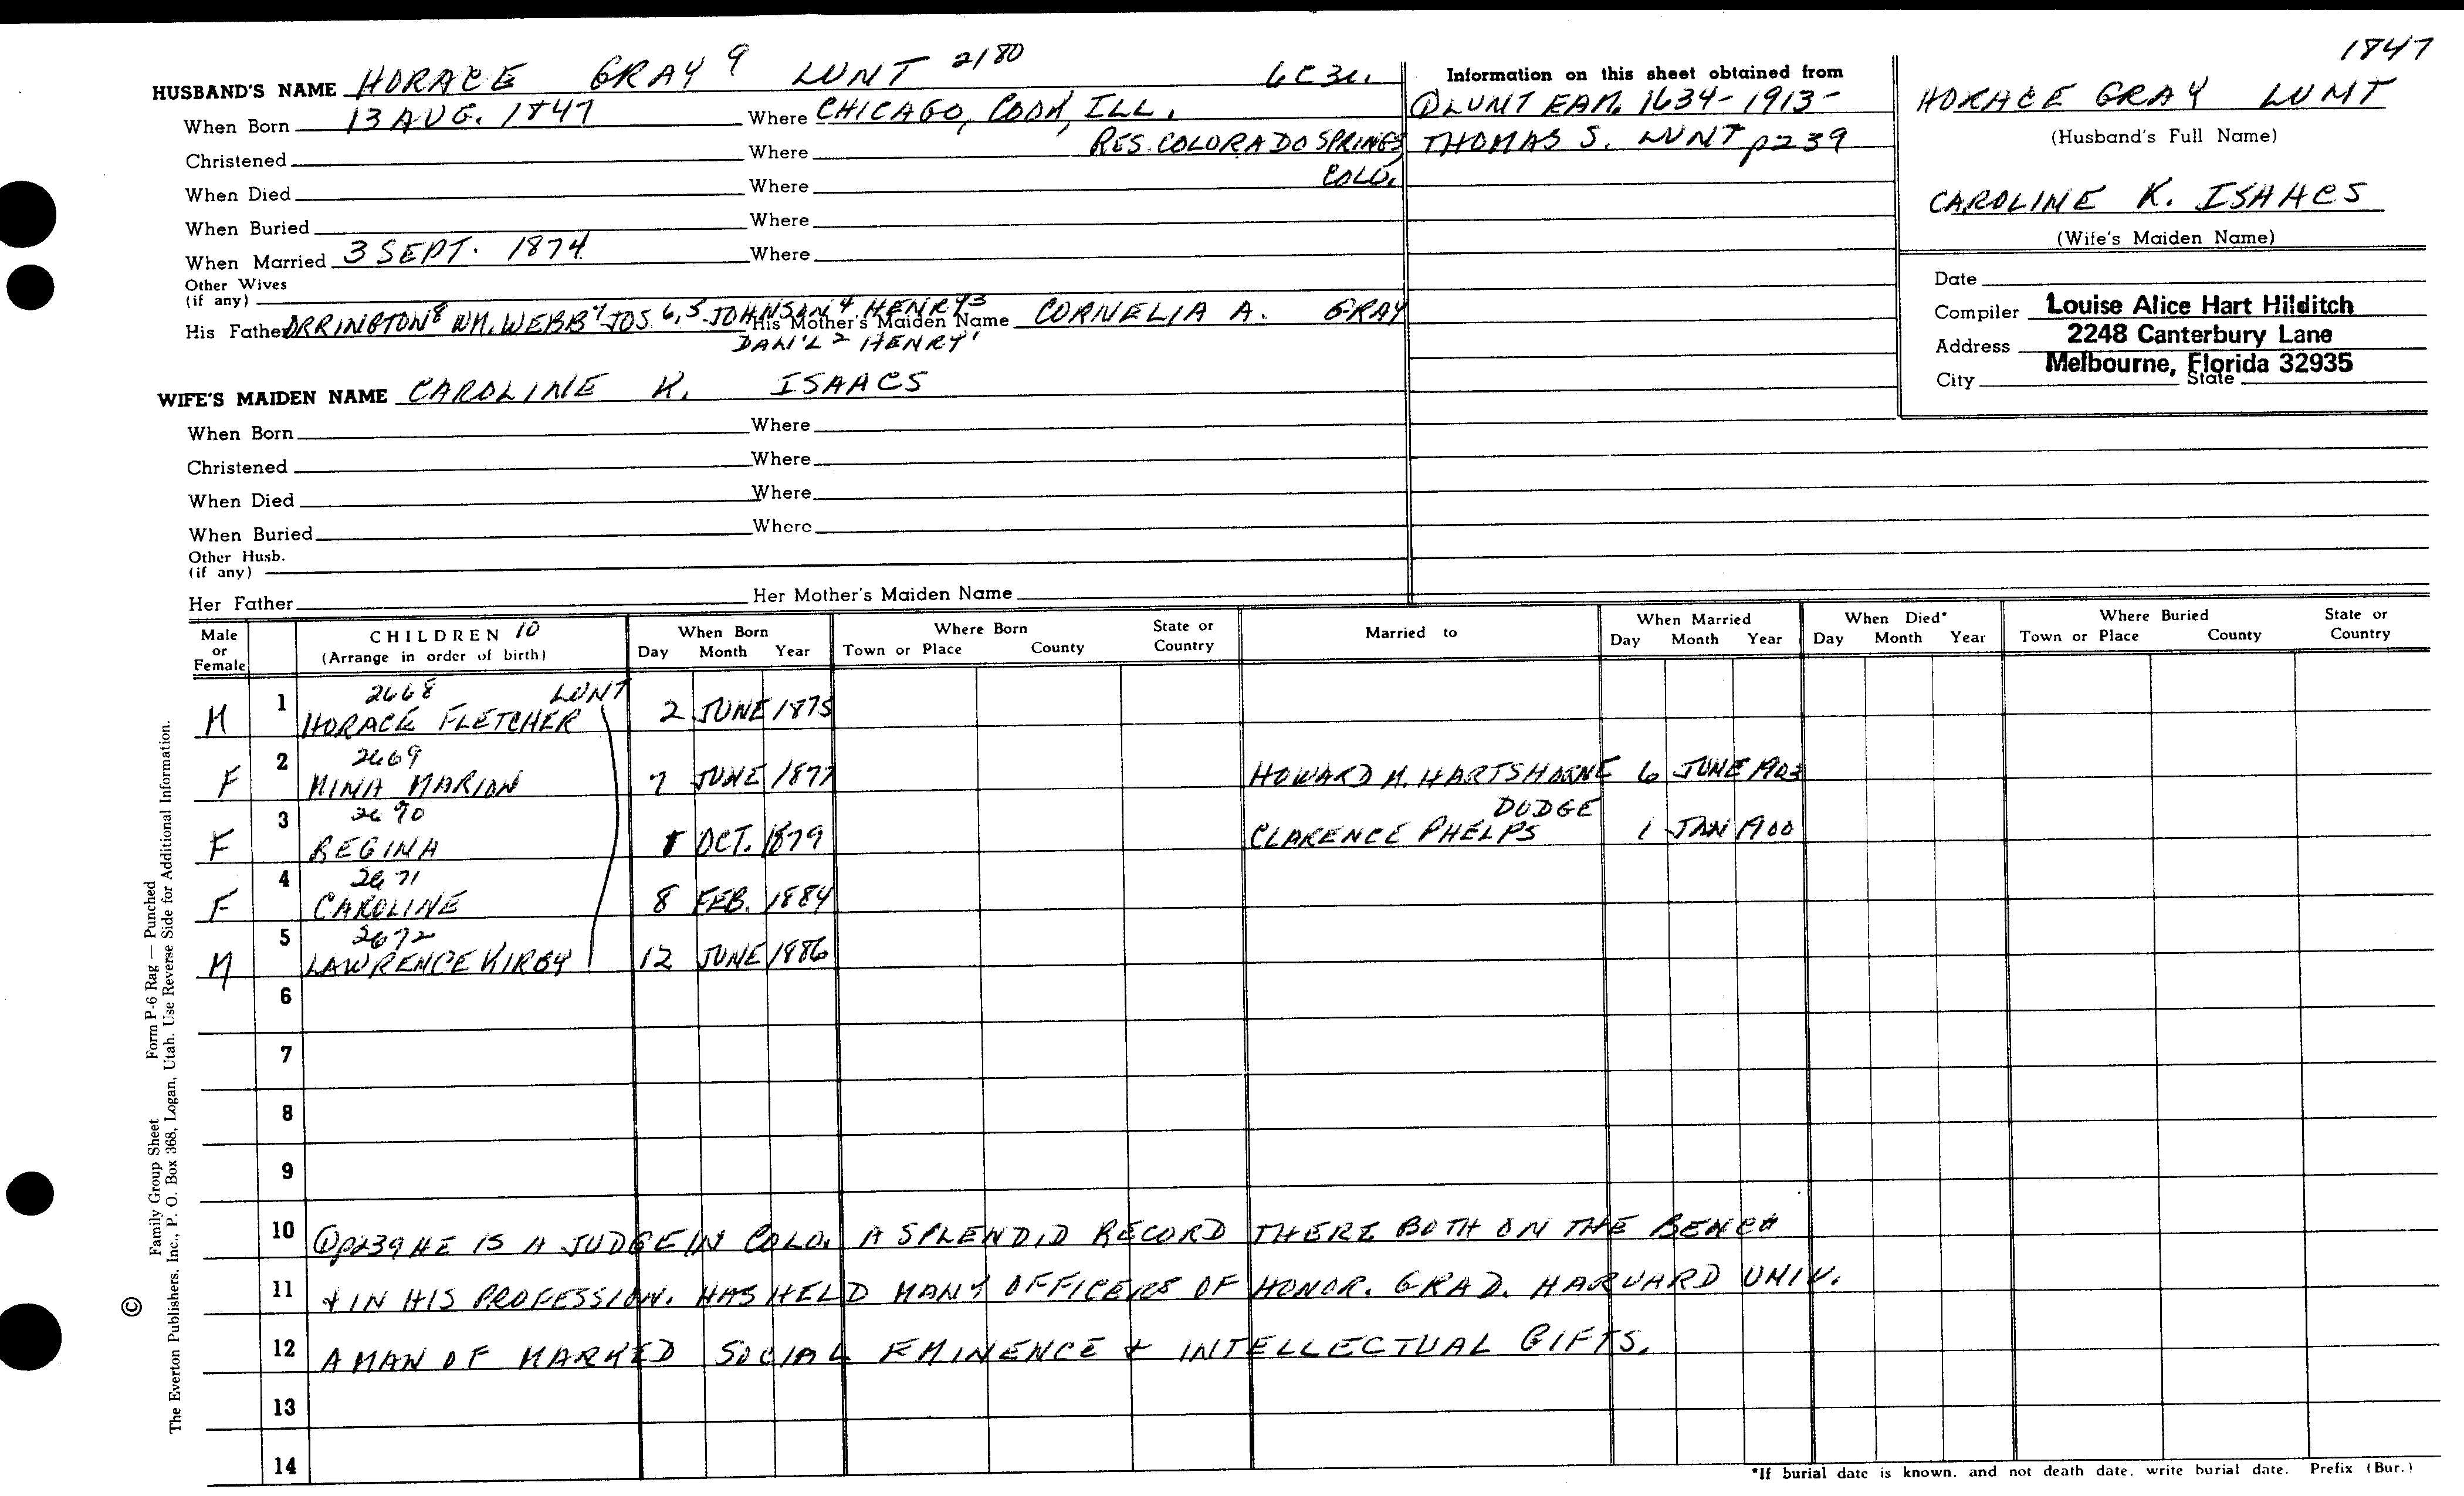 1847
HUSBAND'S NAME HORACE GRAY 9 LUNT 2180
When Born 13 AUG. 1847 Where CHICAGO, COOK, ILL.
Christened Where RES. COLORADO SPRINGS
COLO.
When Died Where
When Buried Where
When Married 3 SEPT. 1874 Where
Other Wives
(if any)
His Father ORRINGTON 8 WM. WEBB 7 JOS. 6, 5 JOHNSAN 4 HENRY 3 His Mother's Maiden Name CORNELIA A. GRAY
DAN'L 2 HENRY 1
Information on this sheet obtained from
① LUNT FAM. 1634-1913-
THOMAS S. LUNT p239
HORACE GRAY LUNT
(Husband's Full Name)
CAROLINE K. ISAACS
(Wife's Maiden Name)
Date
Compiler Louise Alice Hart Hilditch
Address 2248 Canterbury Lane
Melbourne, Florida 32935
City State
WIFE'S MAIDEN NAME CAROLINE K. ISAACS
When Born Where
Christened Where
When Died Where
When Buried Where
Other Husb.
(if any)
Her Father Her Mother's Maiden Name
Male or Female CHILDREN 10 (Arrange in order of birth) When Born Day Month Year Where Born Town or Place County State or Country Married to When Married Day Month Year When Died* Day Month Year Where Buried Town or Place County State or Country
2668 LUNT
M 1 HORACE FLETCHER 2 JUNE 1875
2669
F 2 MINA MARION 7 JUNE 1877 HOWARD M. HARTSHORNE 6 JUNE 1903
2690 DODGE
F 3 REGINA OCT. 1879 CLARENCE PHELPS 1 JAN 1900
2671
F 4 CAROLINE 8 FEB. 1884
2672
M 5 LAWRENCE KIRBY 12 JUNE 1886
6
7
8
9
10 ① p239 HE IS A JUDGE IN COLO. A SPLENDID RECORD THERE BOTH ON THE BENCH
11 + IN HIS PROFESSION. HAS HELD MANY OFFICERS OF HONOR. GRAD. HARVARD UNIV.
12 A MAN OF MARKED SOCIAL EMINENCE + INTELLECTUAL GIFTS.
13
14
*If burial date is known, and not death date, write burial date. Prefix (Bur.)
Family Group Sheet Form P-6 Rag — Punched
© The Everton Publishers, Inc., P. O. Box 368, Logan, Utah. Use Reverse Side for Additional Information.